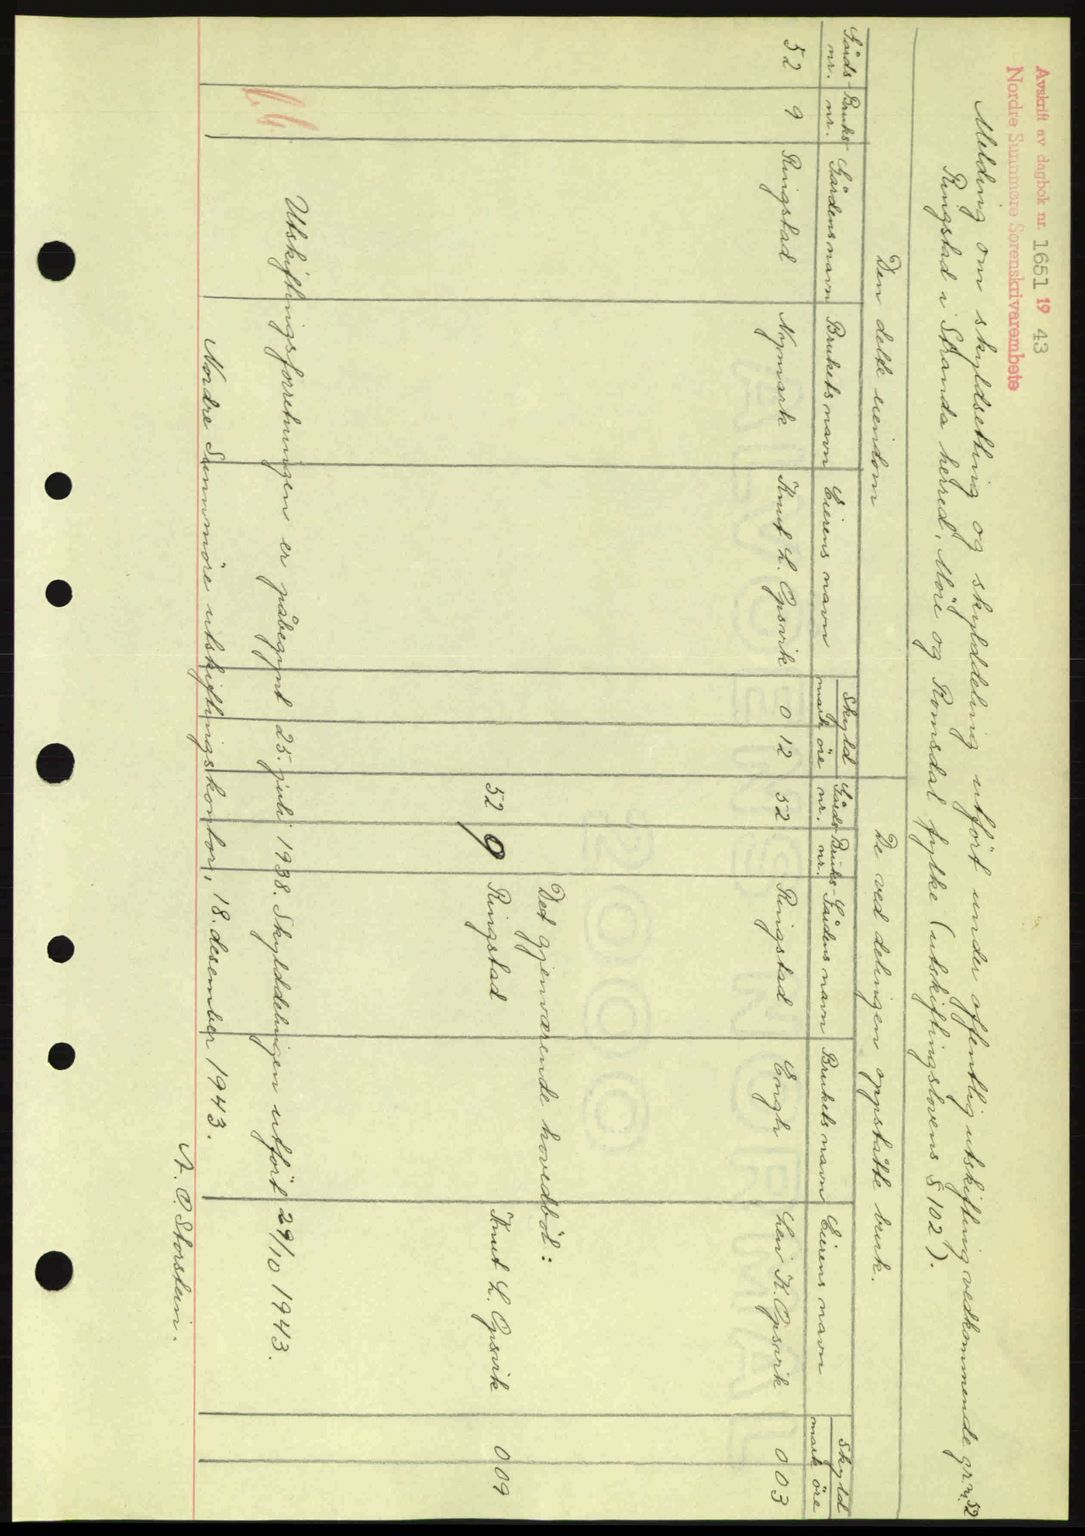 Avskrift av dagbok nr. 1651 1943
Nordre Sunnmøre Sorenskrivarembete
Melding om skyldsetting og skylddeling utført under offentlig utskifting vedkommende gr.nr. 52
Ringstad i Stranda herred, Møre og Romsdal fylke (utskiftingslovens § 102).
Den delte eiendom De ved delingen oppståtte bruk.
Gårds- nr. Bruks- nr. Gårdens navn Brukets navn Eierens navn Skyld mark øre Gårds nr. Bruks- nr. Gårdens navn Brukets navn Eierens navn Skyld mark øre
52 9 Ringstad Nymark Knut L. Opsvik 0 12 52 Ringstad Engli Leiv K. Opsvik 0 03
Det gjenværende hovedbøl:
52 9 Ringstad Knut L. Opsvik 0 09
Utskiftingsforretningen er påbegynt 25. juli 1938. Skylddelingen utført 29/10 1943.
Nordre Sunnmøre utskiftingskontor, 18. desember 1943.
A. O. Storstein.